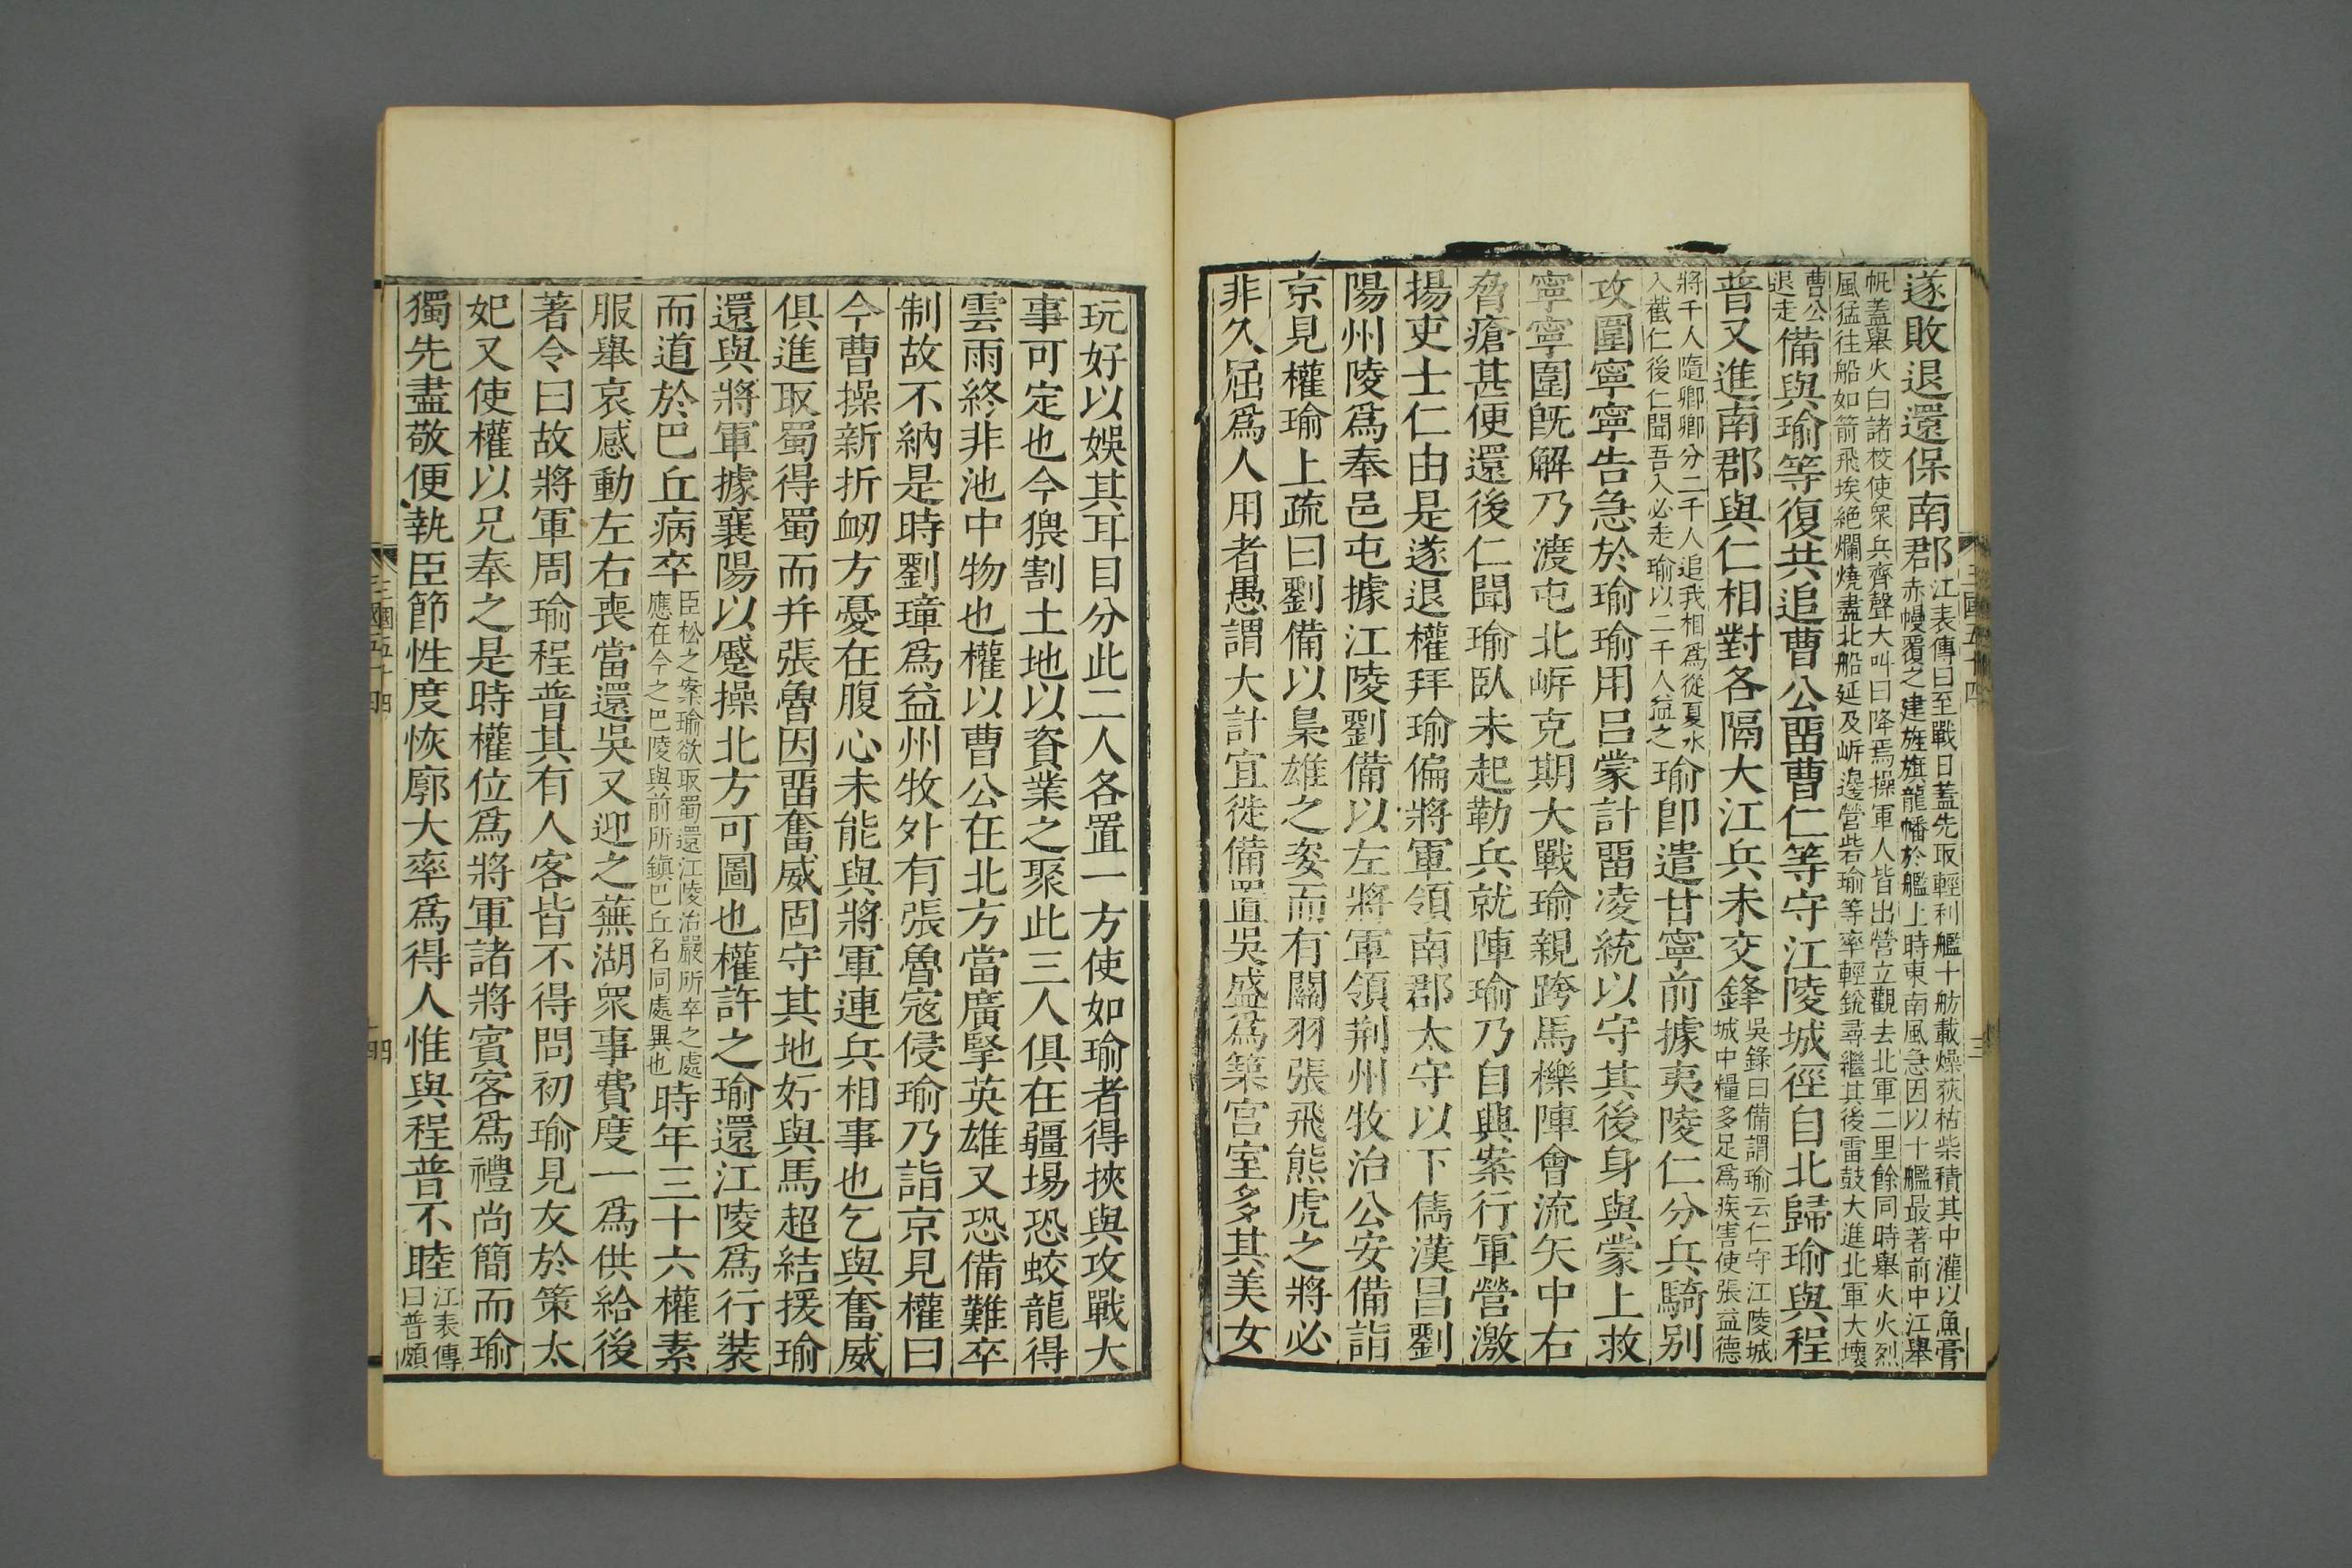 遂敗退還保南郡江表傳曰至戰日蓋先取輕利艦十舫載燥荻枯柴積其中灌以魚膏赤幔覆之建旌旗龍幡於艦上時東南風急因以十艦最著前中江舉
帆蓋舉火白諸校使衆兵齊聲大叫曰降焉操軍人皆出營立觀去北軍二里餘同時舉火火烈風猛往船如箭飛埃絕爛燒盡北船延及岍邊營砦瑜等率輕銳尋繼其後雷鼓大進北軍大壞
曹公退走備與瑜等復共追曹公畱曹仁等守江陵城徑自北歸瑜與程
普又進南郡與仁相對各隔大江兵未交鋒吳錄曰備謂瑜云仁守江陵城城中糧多足爲疾害使張益德
將千人隨卿卿分二千人追我相爲從夏水入截仁後仁聞吾入必走瑜以二千人益之瑜卽遣甘寧前據夷陵仁分兵騎別
攻圍寧寧告急於瑜瑜用呂蒙計畱凌統以守其後身與蒙上救
寧寧圍旣解乃渡屯北岍克期大戰瑜親跨馬櫟陣會流矢中右
脅瘡甚便還後仁聞瑜臥未起勒兵就陣瑜乃自興案行軍營激
揚吏士仁由是遂退權拜瑜偏將軍領南郡太守以下雋漢昌劉
陽州陵爲奉邑屯據江陵劉備以左將軍領荆州牧治公安備詣
京見權瑜上疏曰劉備以梟雄之姿而有關羽張飛熊虎之將必
非久屈爲人用者愚謂大計宜徙備置吳盛爲築宮室多其美女
玩好以娛其耳目分此二人各置一方使如瑜者得挾與攻戰大
事可定也今猥割土地以資業之聚此三人俱在疆埸恐蛟龍得
雲雨終非池中物也權以曹公在北方當廣擥英雄又恐備難卒
制故不納是時劉璋爲益州牧外有張魯寇侵瑜乃詣京見權曰
今曹操新折衂方憂在腹心未能與將軍連兵相事也乞與奮威
俱進取蜀得蜀而并張魯因畱奮威固守其地好與馬超結援瑜
還與將軍據襄陽以蹙操北方可圖也權許之瑜還江陵爲行裝
而道於巴丘病卒臣松之案瑜欲取蜀還江陵治嚴所卒之處應在今之巴陵與前所鎮巴丘名同處異也時年三十六權素
服舉哀感動左右喪當還吳又迎之蕪湖衆事費度一爲供給後
著令曰故將軍周瑜程普其有人客皆不得問初瑜見友於策太
妃又使權以兄奉之是時權位爲將軍諸將賓客爲禮尚簡而瑜
獨先盡敬便執臣節性度恢廓大率爲得人惟與程普不睦江表傳曰普頗
三國五十四
四